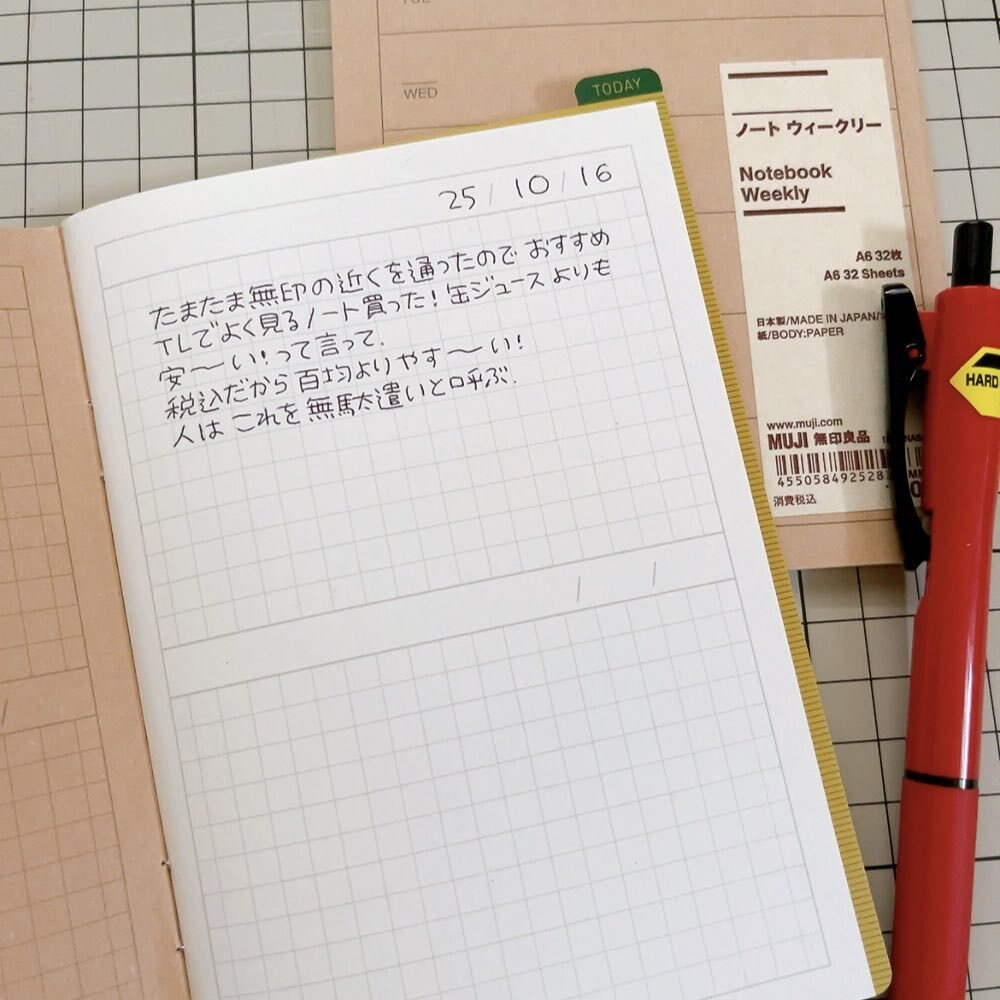 WED
TODAY
25 / 10 / 16
たまたま無印の近くを通ったので おすすめ
TLでよく見るノート買った！缶ジュースよりも
安〜い！って言って.
税込だから百均よりやす〜い！
人は これを 無駄遣いと呼ぶ.
/ /
ノート ウィークリー
Notebook
Weekly
A6 32枚
A6 32 Sheets
日本製/MADE IN JAPAN/
紙/BODY:PAPER
www.muji.com
MUJI 無印良品
455058492528
消費税込
HARD